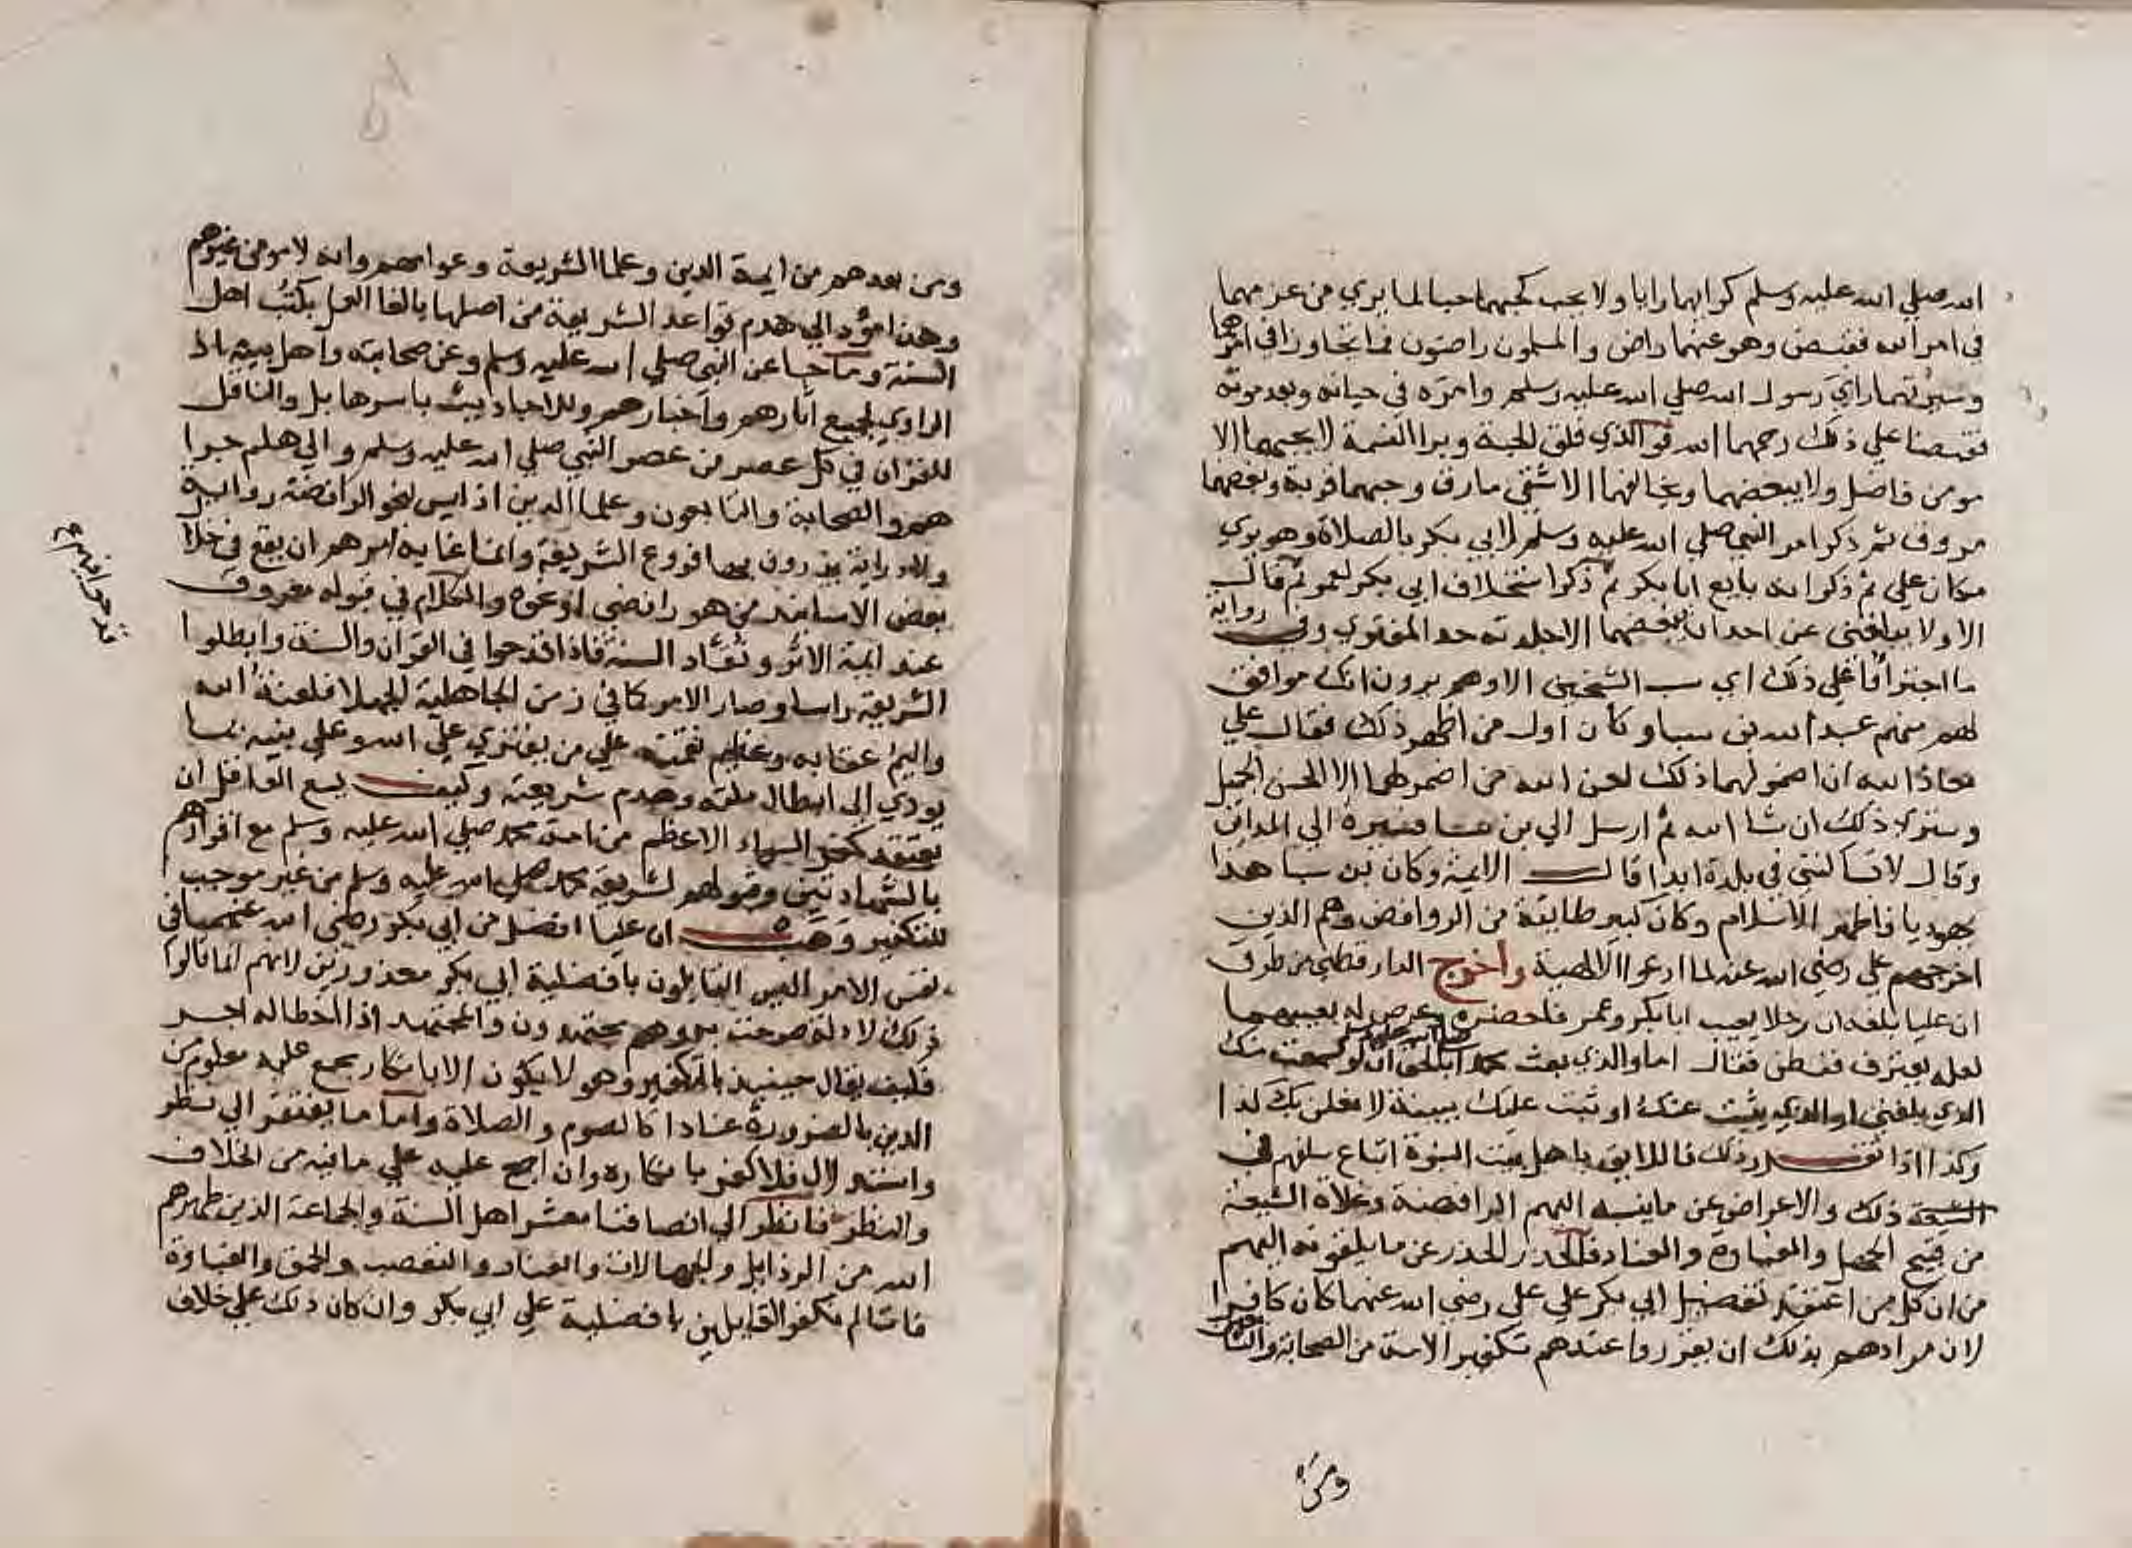 الله صلي الله عليه وسلم كرايهما رايا ولا يحب كحبهما حبا لما يري من عزمهما
في امر الله فقبض وهو عنهما راض والمسلمون راضون فما تجاوزا في امرهما
وسيرتهما راي رسول الله صلي الله عليه وسلم وامره في حياته وبعد موته
فقبضا علي ذلك رحمهما الله فوالذي فلق الحبة وبرا النسمة لا يحبهما الا
مومن فاضل ولا يبغضهما ويخالفهما الا شقي مارق وحبهما قربة وبغضهما
مروق ثم ذكر امر النبي صلي الله عليه وسلم لابي بكر بالصلاة وهو يري
مكان علي ثم ذكر انه بايع ابا بكر ثم ذكر استخلاف ابي بكر لعمر ثم قال
الا ولا يبلغني عن احد انه يبغضهما الا جلدته حد المفتري وفي رواية
ما اجترأوا علي ذلك اي سب الشيخين الا وهم يرون انك موافق
لهم منهم عبد الله بن سبا وكان اول من اظهر ذلك فقال علي
معاذ الله ان اضمر لهما ذلك لعن الله من اضمر لهما الا الحسن الجميل
وستري ذلك ان شا الله ثم ارسل الي بن سبا فسيره الي المداين
وقال لا تساكنني في بلدة ابدا قال الايمة وكان بن سبا هذا
يهوديا فاظهر الاسلام وكان كبير طايفة من الروافض وهم الذين
اخرجهم علي رضي الله عنه لما ادعوا الالهية واخرج الدارقطني من طرق
ان عليا بلغه ان رجلا يعيب ابا بكر وعمر فاحضره وعرض له بعيبهما
لعله يعترف ففطن فقال اما والذي بعث محمدا صلى الله عليه وسلم بالحق ان لو سمعت منك
الذي بلغني او الذي نبئت عنك او ثبت عليك ببينة لافعلن بك كذا
وكذا اذا تقرر ذلك فاللايق باهل بيت النبوة اتباع سلفهم في
ذلك والاعراض عن ما ينسبه اليهم الرافضة وغلاة الشيعة
من قبيح الجهل والغباوة والعناد فالحذر الحذر عن ما يلقونه اليهم
من ان كل من اعتقد تفضيل ابي بكر علي علي رضي الله عنهما كان كافرا
لان مرادهم بذلك ان يقرروا عندهم تكفير الامة من الصحابة والتابعين
ومن
ومن بعدهم من ايمة الدين وعلما الشريعة وعوامهم وانه لا مومن غيرهم
وهذا مؤد الي هدم قواعد الشريعة من اصلها بالغا العمل بكتب اهل
السنة وما جا عن النبي صلي الله عليه وسلم وعن صحابته واهل بيته اذ
الراوي لجميع اثارهم واخبارهم وللاحاديث باسرها بل والناقل
للقران في كل عصر من عصر النبي صلي الله عليه وسلم والي هلم جرا
هم الصحابة والتابعون وعلما الدين اذ ليس لنحو الرافضة رواية
ولا دراية يدرون بها فروع الشريعة وانما غاية امرهم ان يقع في خلال
بعض الاسانيد من هو رافضي او نحوه والكلام في قبوله معروف
عند ايمة الاثر ونقاد السنة فاذا قدحوا في القران والسنة وابطلوا
الشريعة راسا وصار الامر كما في زمن الجاهلية الجهلا فلعنة الله
واليم عقابه وعظيم نقمته علي من يفتري علي الله وعلي نبيه بما
يودي الي ابطال ملته وهدم شريعته وكيف يسع العاقل ان
يعتقد كفر السواد الاعظم من امة محمد صلي الله عليه وسلم مع اقرارهم
بالشهادتين وقبولهم لشريعة محمد صلي الله عليه وسلم من غير موجب
للتكفير وهب ان عليا افضل من ابي بكر رضي الله عنهما في
نفس الامر اليس القايلون بافضلية ابي بكر معذورين لانهم انما قالوا
ذلك لادلة صرحت به وهم مجتهدون والمجتهد اذا اخطا له اجر
فكيف يقال حينيذ بالتكفير وهو لا يكون الا بانكار مجمع عليه معلوم من
الدين بالضرورة عنادا كالصوم والصلاة واما ما يفتقر الي نظر
واستدلال فلا كفر بانكاره وان اجمع عليه علي ما فيه من الخلاف
والنظر فانظر الي انصافنا معشر اهل السنة والجماعة الذين طهرهم
الله من الرذايل والجهالات والعناد والتعصب والحمق والغباوة
فاننا لم نكفر القايلين بافضلية علي علي ابي بكر وان كان ذلك علي خلاف